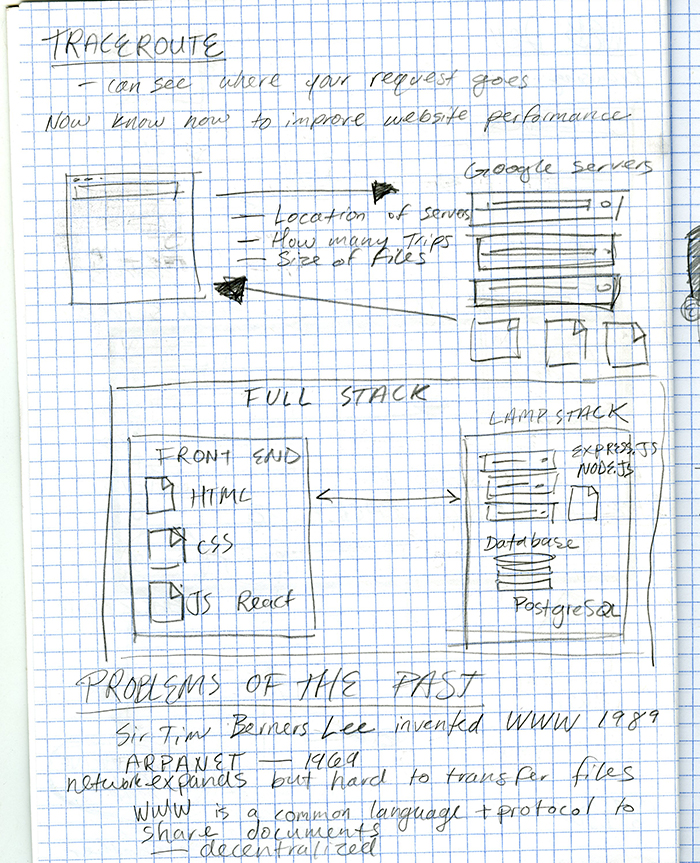 TRACEROUTE
- can see where your request goes
Now know how to improve website performance
Google Servers
— Location of servers
— How many Trips
— Size of files
FULL STACK
LAMP STACK
FRONT END
HTML
CSS
JS React
EXPRESS.JS
NODE.JS
Database
PostgreSQL
PROBLEMS OF THE PAST
Sir Tim Berners Lee invented WWW 1989
ARPANET — 1969
network expands but hard to transfer files
WWW is a common language + protocol to
share documents
— decentralized